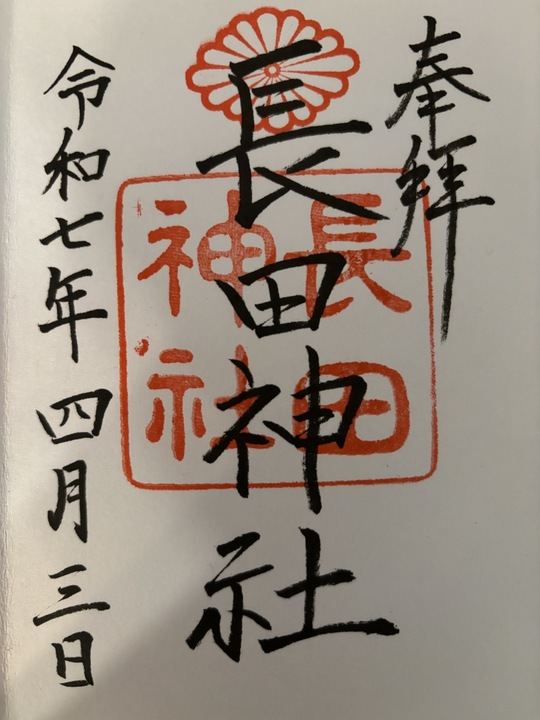 奉拝
長田神社
長田
神社
令和七年四月三日